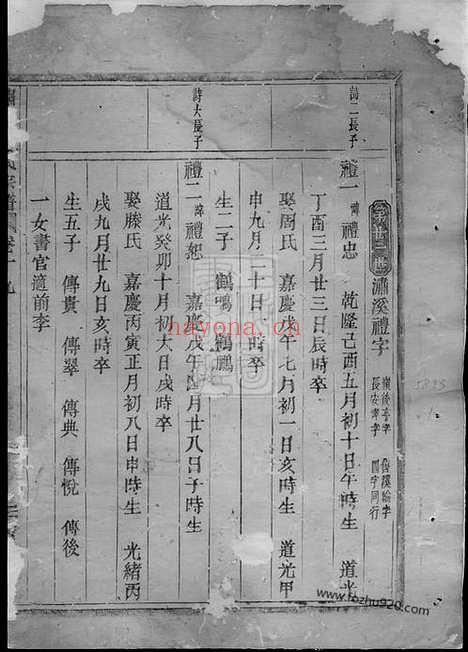 第廿二世 瀟溪禮字 嶺後亭字 俊溪綸字
長安孝字 圓字同行
詩二長子
禮一 諱禮忠 乾隆己酉五月初十日午時生 道光
丁酉三月廿三日辰時卒
娶周氏 嘉慶戊午七月初一日亥時生 道光甲
申九月二十日 時卒
生二子 鶴鳴 鶴鵬
詩大長子
禮二 諱禮恕 嘉慶戊午 月廿八日子時生
道光癸卯十月初六日戌時卒
娶滕氏 嘉慶丙寅正月初八日申時生 光緒丙
戌九月廿九日亥時卒
生五子 傳貴 傳翠 傳典 傳悅 傳後
一女書官道前李
宗譜 卷十九
5825
hayona.cn
www.fozhu920.com